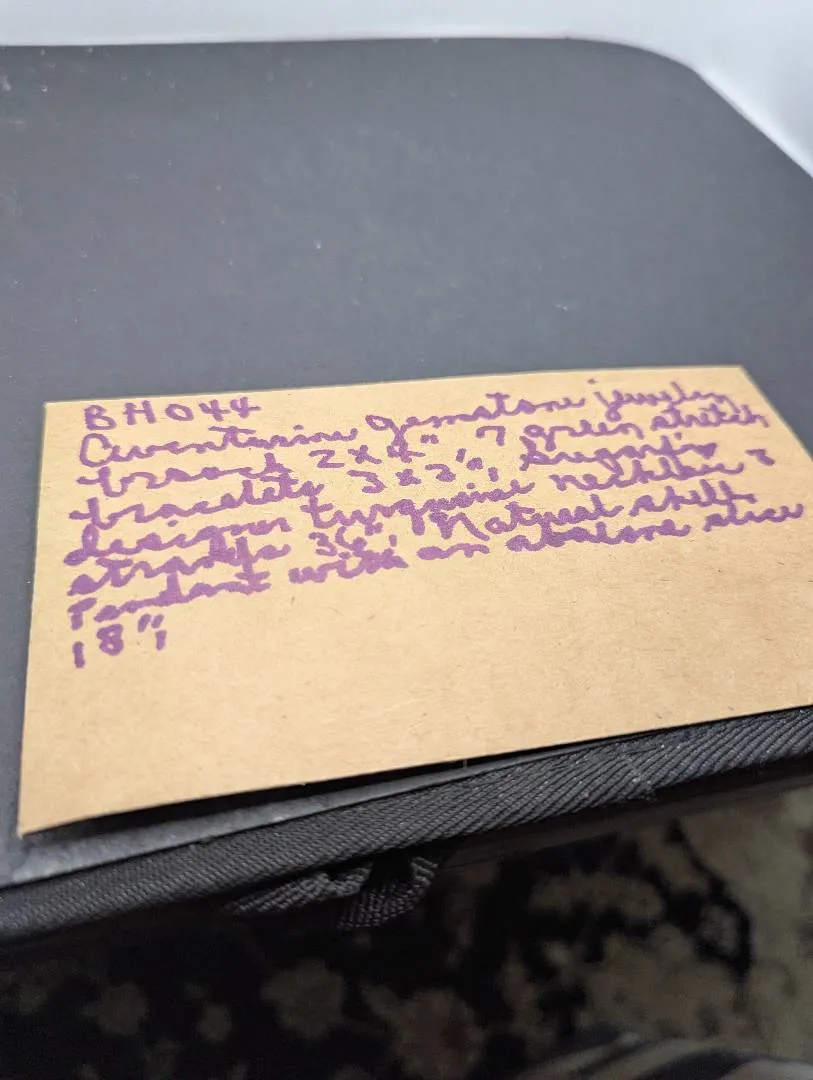 BH044
Aventurine gemstone jewelry
brooch 2x4", 7 green stretch
bracelets 3x3", Sugarfix
designer turquoise necklace 3
strands 36", Natrual shell
Pendant with an abalone slice
18",